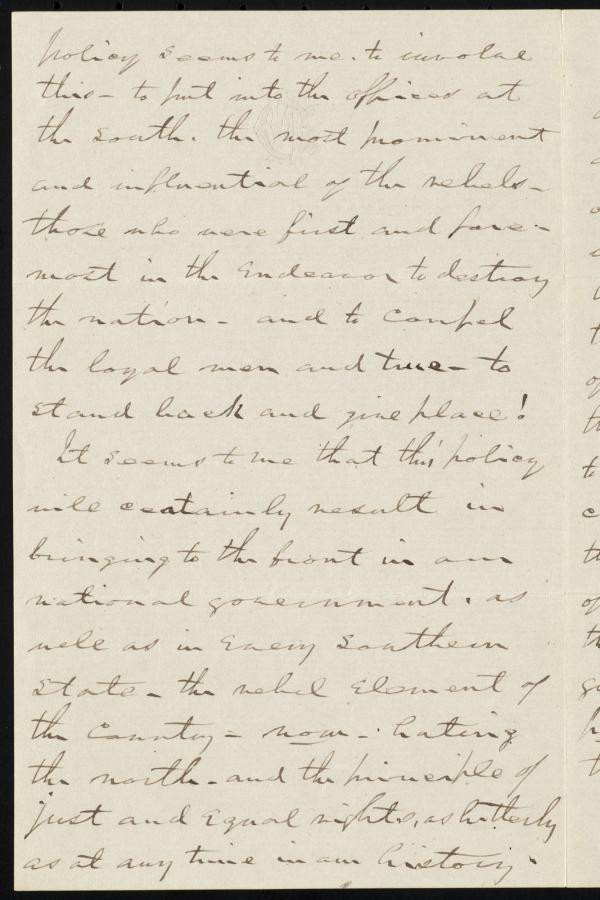 policy seems to me. to involve
this - to put into the offices at
the South. the most prominent
and influential of the rebels -
those who were first and fore -
most in the Endeavor to destroy
the nation - and to compel
the loyal men and true - to
stand back and give place!
It seems to me that this policy
will certainly result in
bringing to the front in our
national government. as
well as in Every Southern
State - the rebel Element of
the Country - now - hating
the north - and the principle of
just and Equal rights, as bitterly
as at any time in our history.